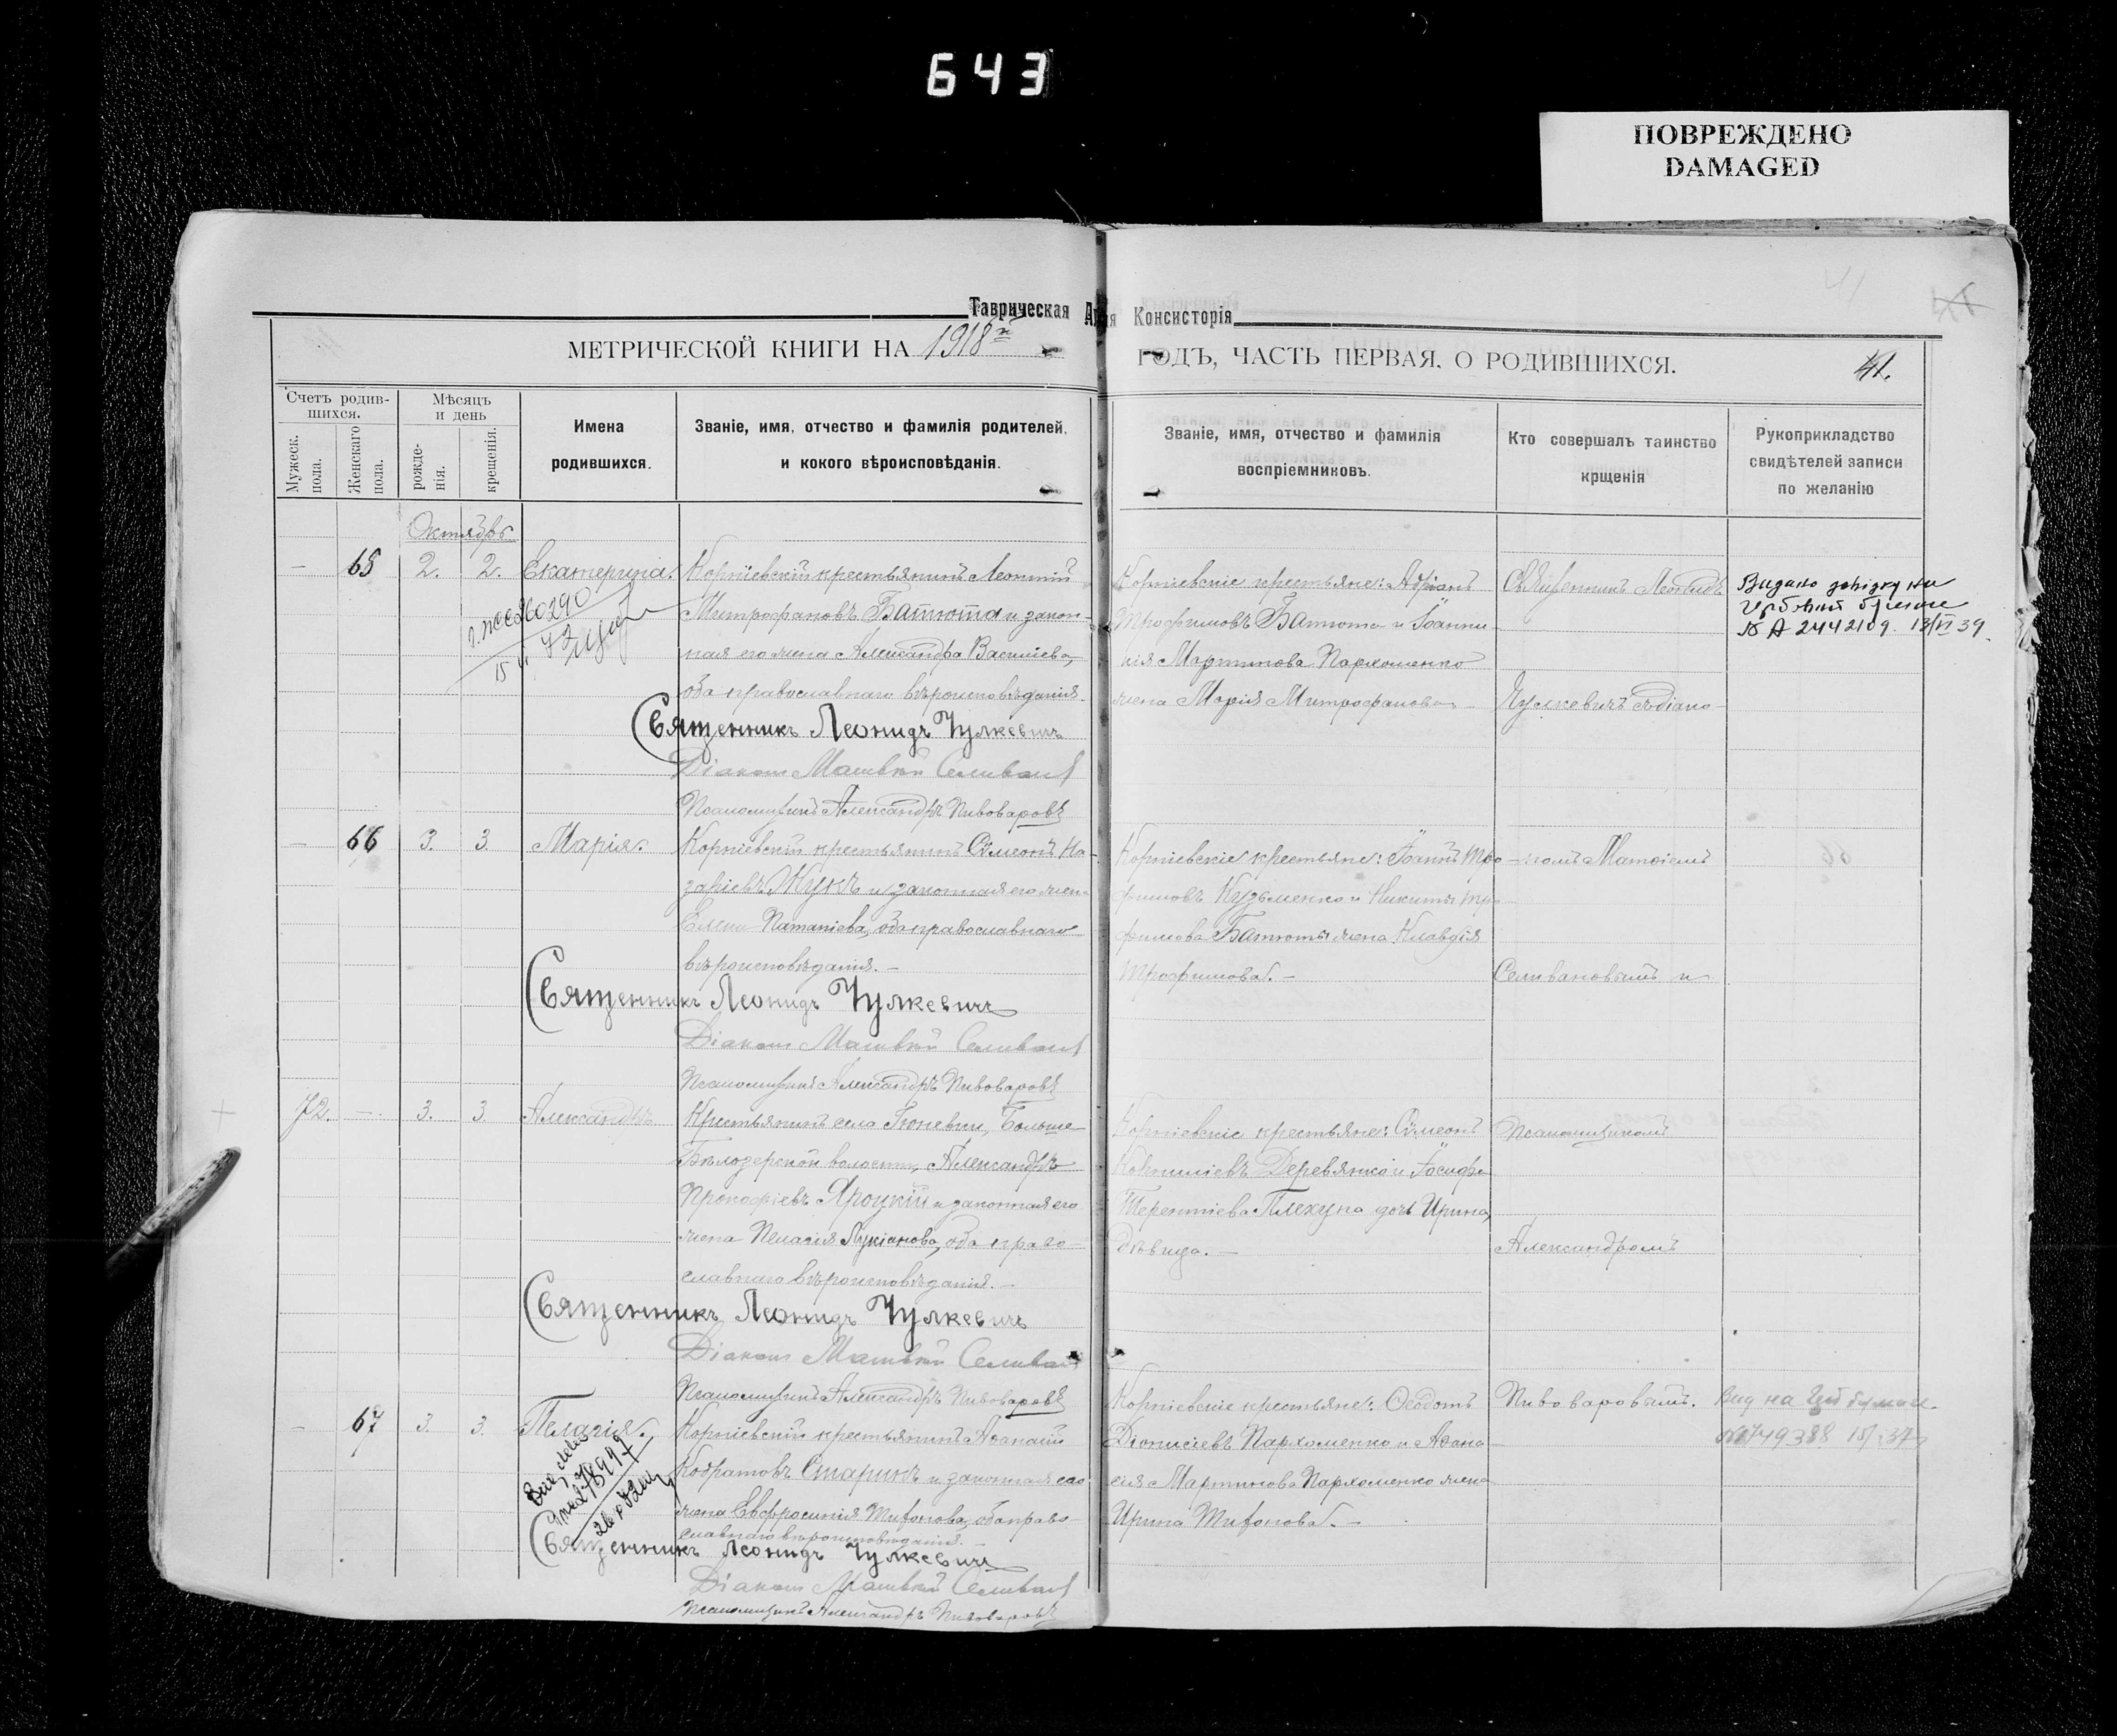 643
ПОВРЕЖДЕНО
DAMAGED
Таврическая
Консисторія
МЕТРИЧЕСКОЙ КНИГИ НА 1918
ГОДЪ, ЧАСТЬ ПЕРВАЯ. О РОДИВШИХСЯ.
41.
Счетъ родив-
шихся.
Мужеск.
пола.
Женскаго
пола.
Мѣсяцъ
и день
рожде-
нія.
крещенія.
Имена
родившихся.
Званіе, имя, отчество и фамилія родителей,
и кокого вѣроисповѣданія.
Званіе, имя, отчество и фамилія
воспріемниковъ.
Кто совершалъ таинство
крщенія
Рукоприкладство
свидѣтелей записи
по желанію
Октябрь
— 65 2. 2. Екатерина.
Корніевскій крестьянинъ Леонтій
Митрофановъ Батюта и закон-
ная его жена Александра Василіева,
оба православнаго вѣроисповѣданія.
Священникъ Леонидъ Чулкевичъ
Діаконъ Матвѣй Селиванов
Псаломщикъ Александръ Пивоваровъ
Корніевскіе крестьяне: Адріанъ
Трофимовъ Батюта и Іоанни-
кія Мартинова Пархоменко
жена Марія Митрофанова
Священникъ Леонидъ
Чулкевичъ съ діако-
№ А 2442109. 13/VI 39.
— 66 3. 3. Марія.
Корніевскій крестьянинъ Симеонъ На-
заріевъ Жукъ и законная его жена
Елена Паталіева, оба православнаго
вѣроисповѣданія. —
Священникъ Леонидъ Чулкевичъ
Діаконъ Матвѣй Селиванов
Псаломщикъ Александръ Пивоваровъ
Корніевскіе крестьяне: Іоаннъ Тро-
фимовъ Кузьменко и Никиты Тро-
фимова Батюты жена Клавдія
Трофимова. —
номъ Матѳіемъ
Селивановымъ и
72. — 3. 3. Александръ
Крестьянинъ села Гюневки, Больше-
Бѣлозерской волости, Александръ
Прокофіевъ Яроцкій и законная его
жена Пелагія Лукіанова, оба право-
славнаго вѣроисповѣданія. —
Священникъ Леонидъ Чулкевичъ
Діаконъ Матвѣй Селиванов
Псаломщикъ Александръ Пивоваровъ
Корніевскіе крестьяне: Симеонъ
Корниліевъ Деревянко и Іосифа
Терентіева Плехуна дочь Ирина,
дѣвица. —
Псаломщикомъ
Александромъ
— 67 3. 3. Пелагія.
Корніевскій крестьянинъ Аѳанасій
Кодратовъ Старикъ и законная его
жена Евфросинія Тифонова, оба право-
славнаго вѣроисповѣданія. —
Священникъ Леонидъ Чулкевичъ
Діаконъ Матвѣй Селиванов
Псаломщикъ Александръ Пивоваровъ
Корніевскіе крестьяне: Ѳеодотъ
Діонисіевъ Пархоменко и Аѳана-
сія Мартинова Пархоменко жена
Ирина Тифонова. —
Пивоваровымъ.